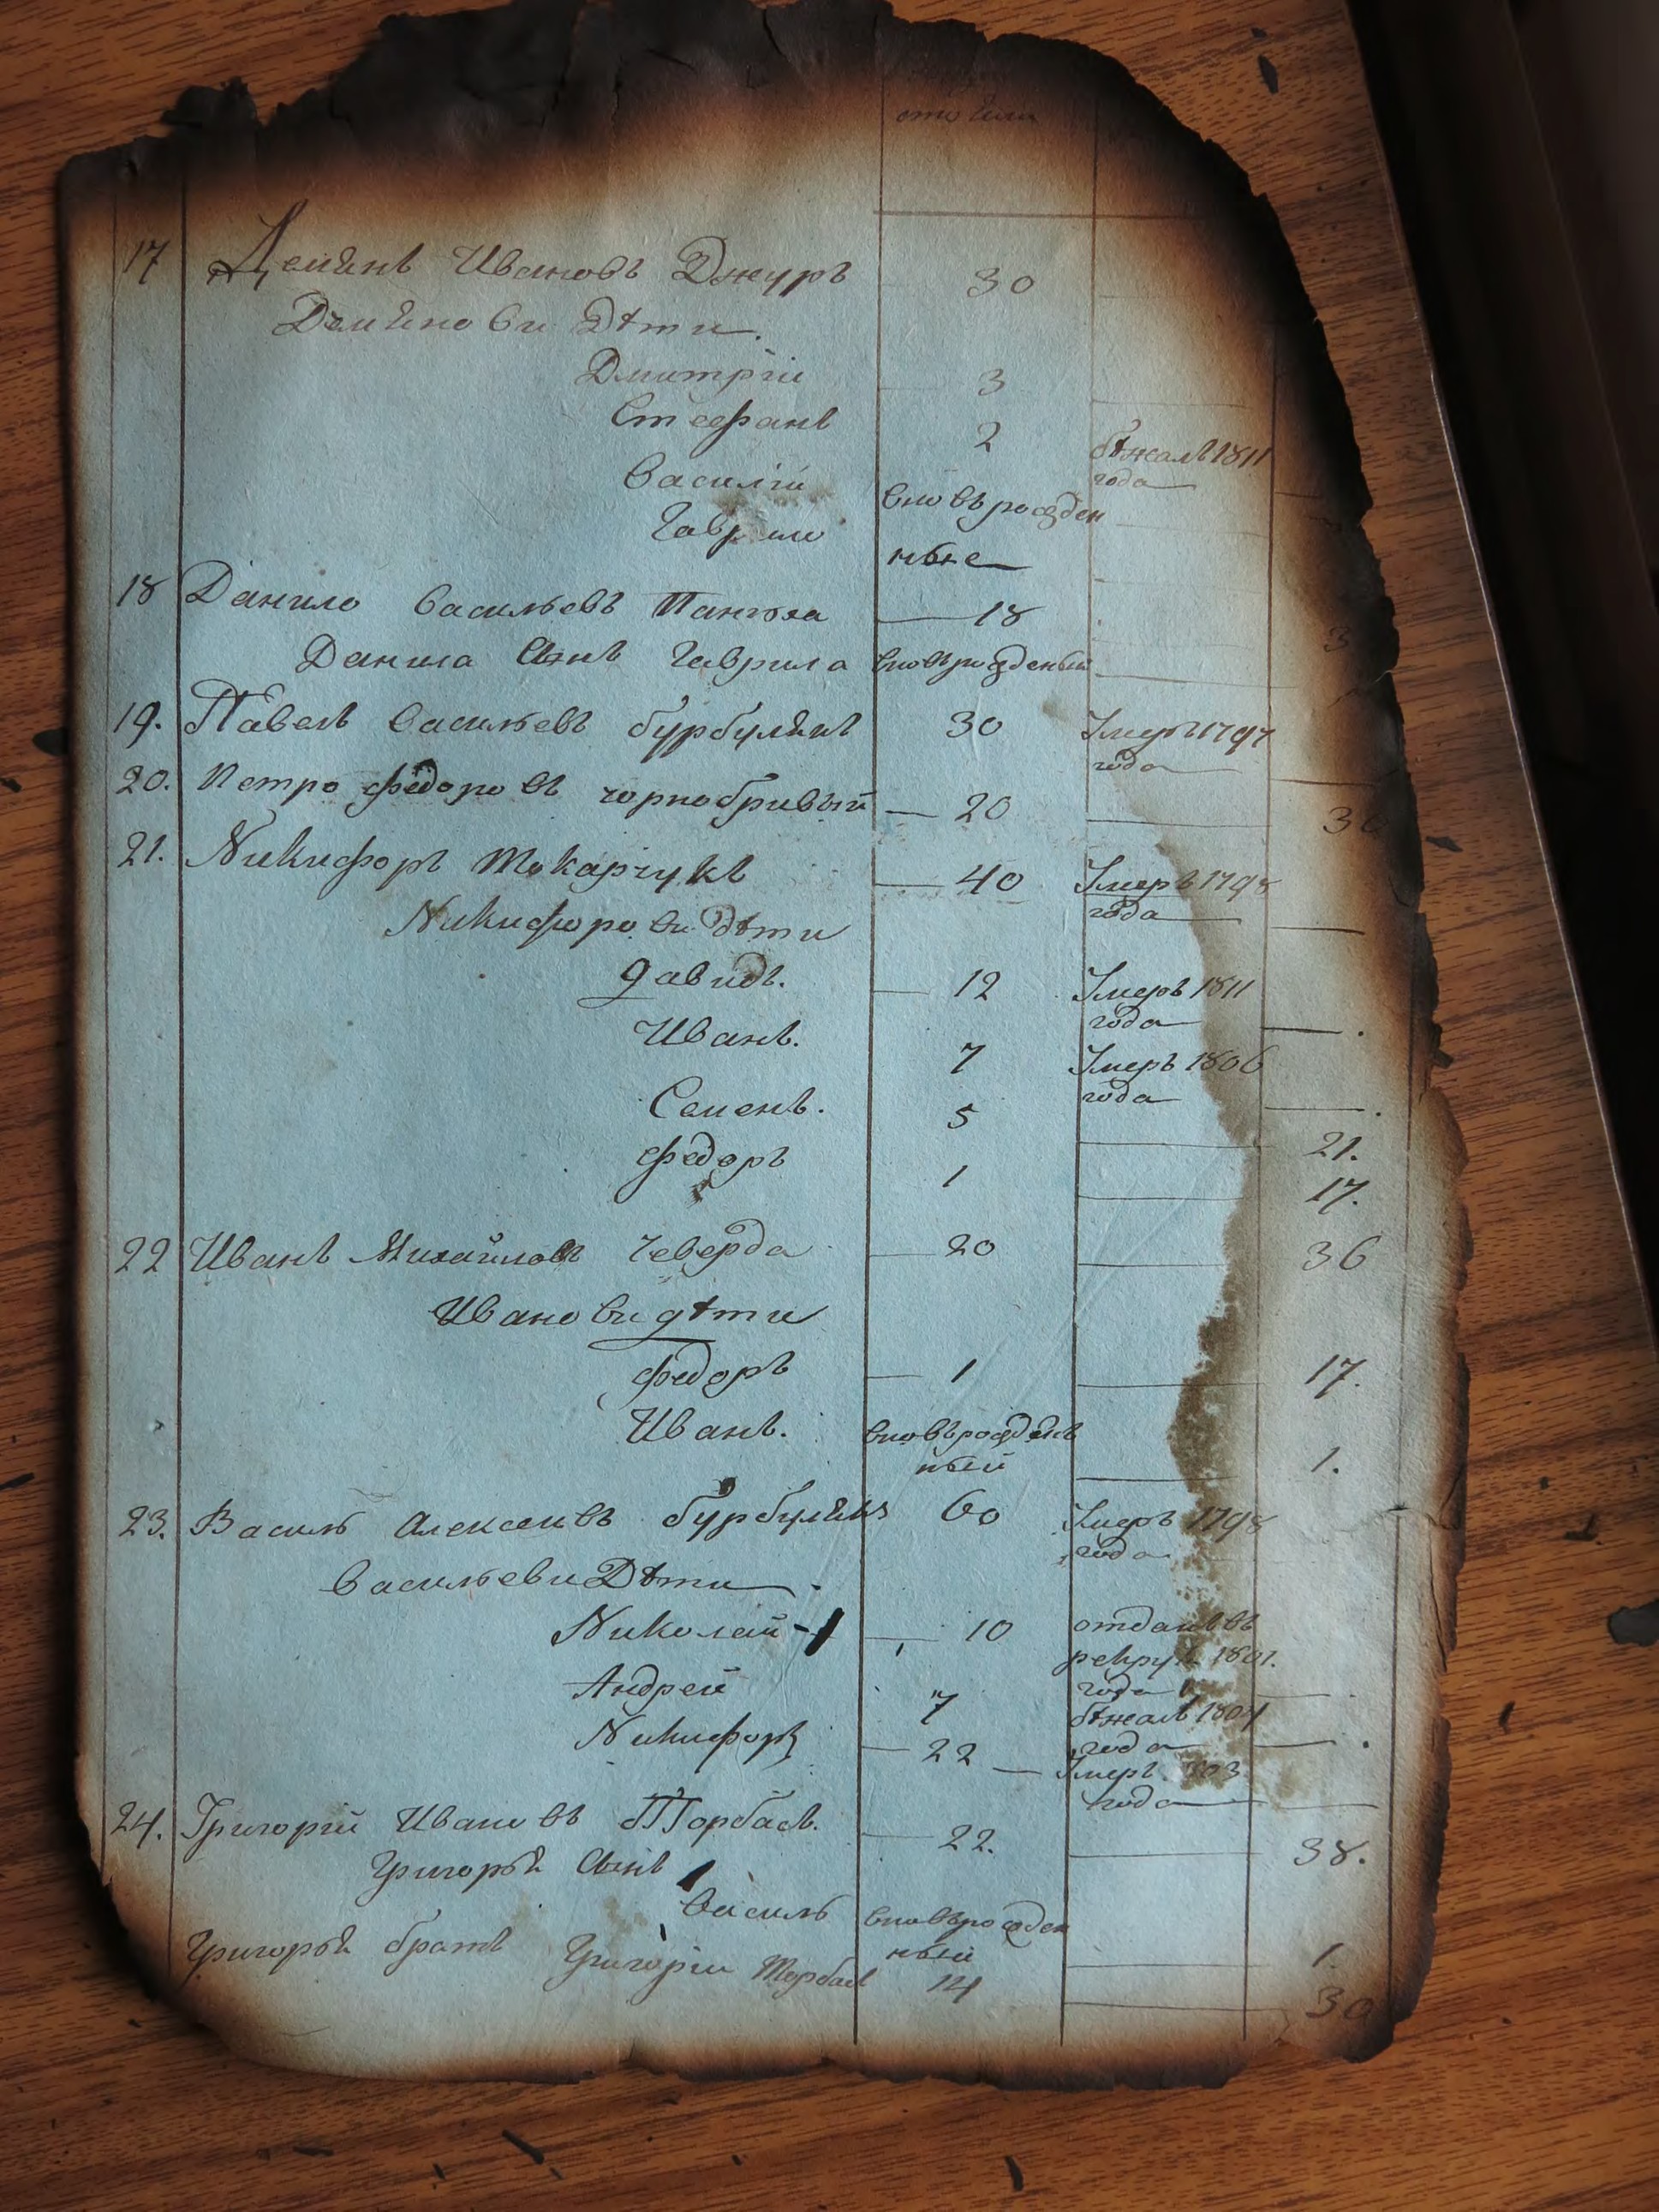 17 Демянъ Ивановъ Джуръ 30
Демянови Дѣти.
Дмитрій 3
Стефанъ 2 бѣжалъ 1811
года
Василій вновьрожден
Гаврило ные
18 Данило Васильевъ 18
Данила Сынъ Гаврила вновьрожденый
19. Павелъ Васильевъ бурбулянъ 30 Умеръ 1797
года
20. Петро федоровъ чорнобривый 20
21. Никифоръ Токарчукъ 40 Умеръ 1798
года
Никифорови дѣти
давидъ. 12 Умеръ 1811
года
Иванъ. 7 Умеръ 1806
года
Семенъ. 5 21.
федоръ 1 17.
22 Иванъ Михайловъ Чеверда 20 36
Иванови дѣти
федоръ 1 17.
Иванъ. вновьрожден
ный 1.
23. Василь Алексеивъ бурбулянъ 60 Умеръ 1798
года
Васильеви Дѣти
Николай 10 отданъ въ
рекру 1801.
года
Андрей 7 бѣжалъ 1804
года
Никифоръ 22 Умеръ
года
24. Григорій Ивановъ Торбасъ. 22. 38.
Григорья Сынъ
Василь вновьрожден
ный 1.
Григорья братъ Григорій Торбасъ 14 30